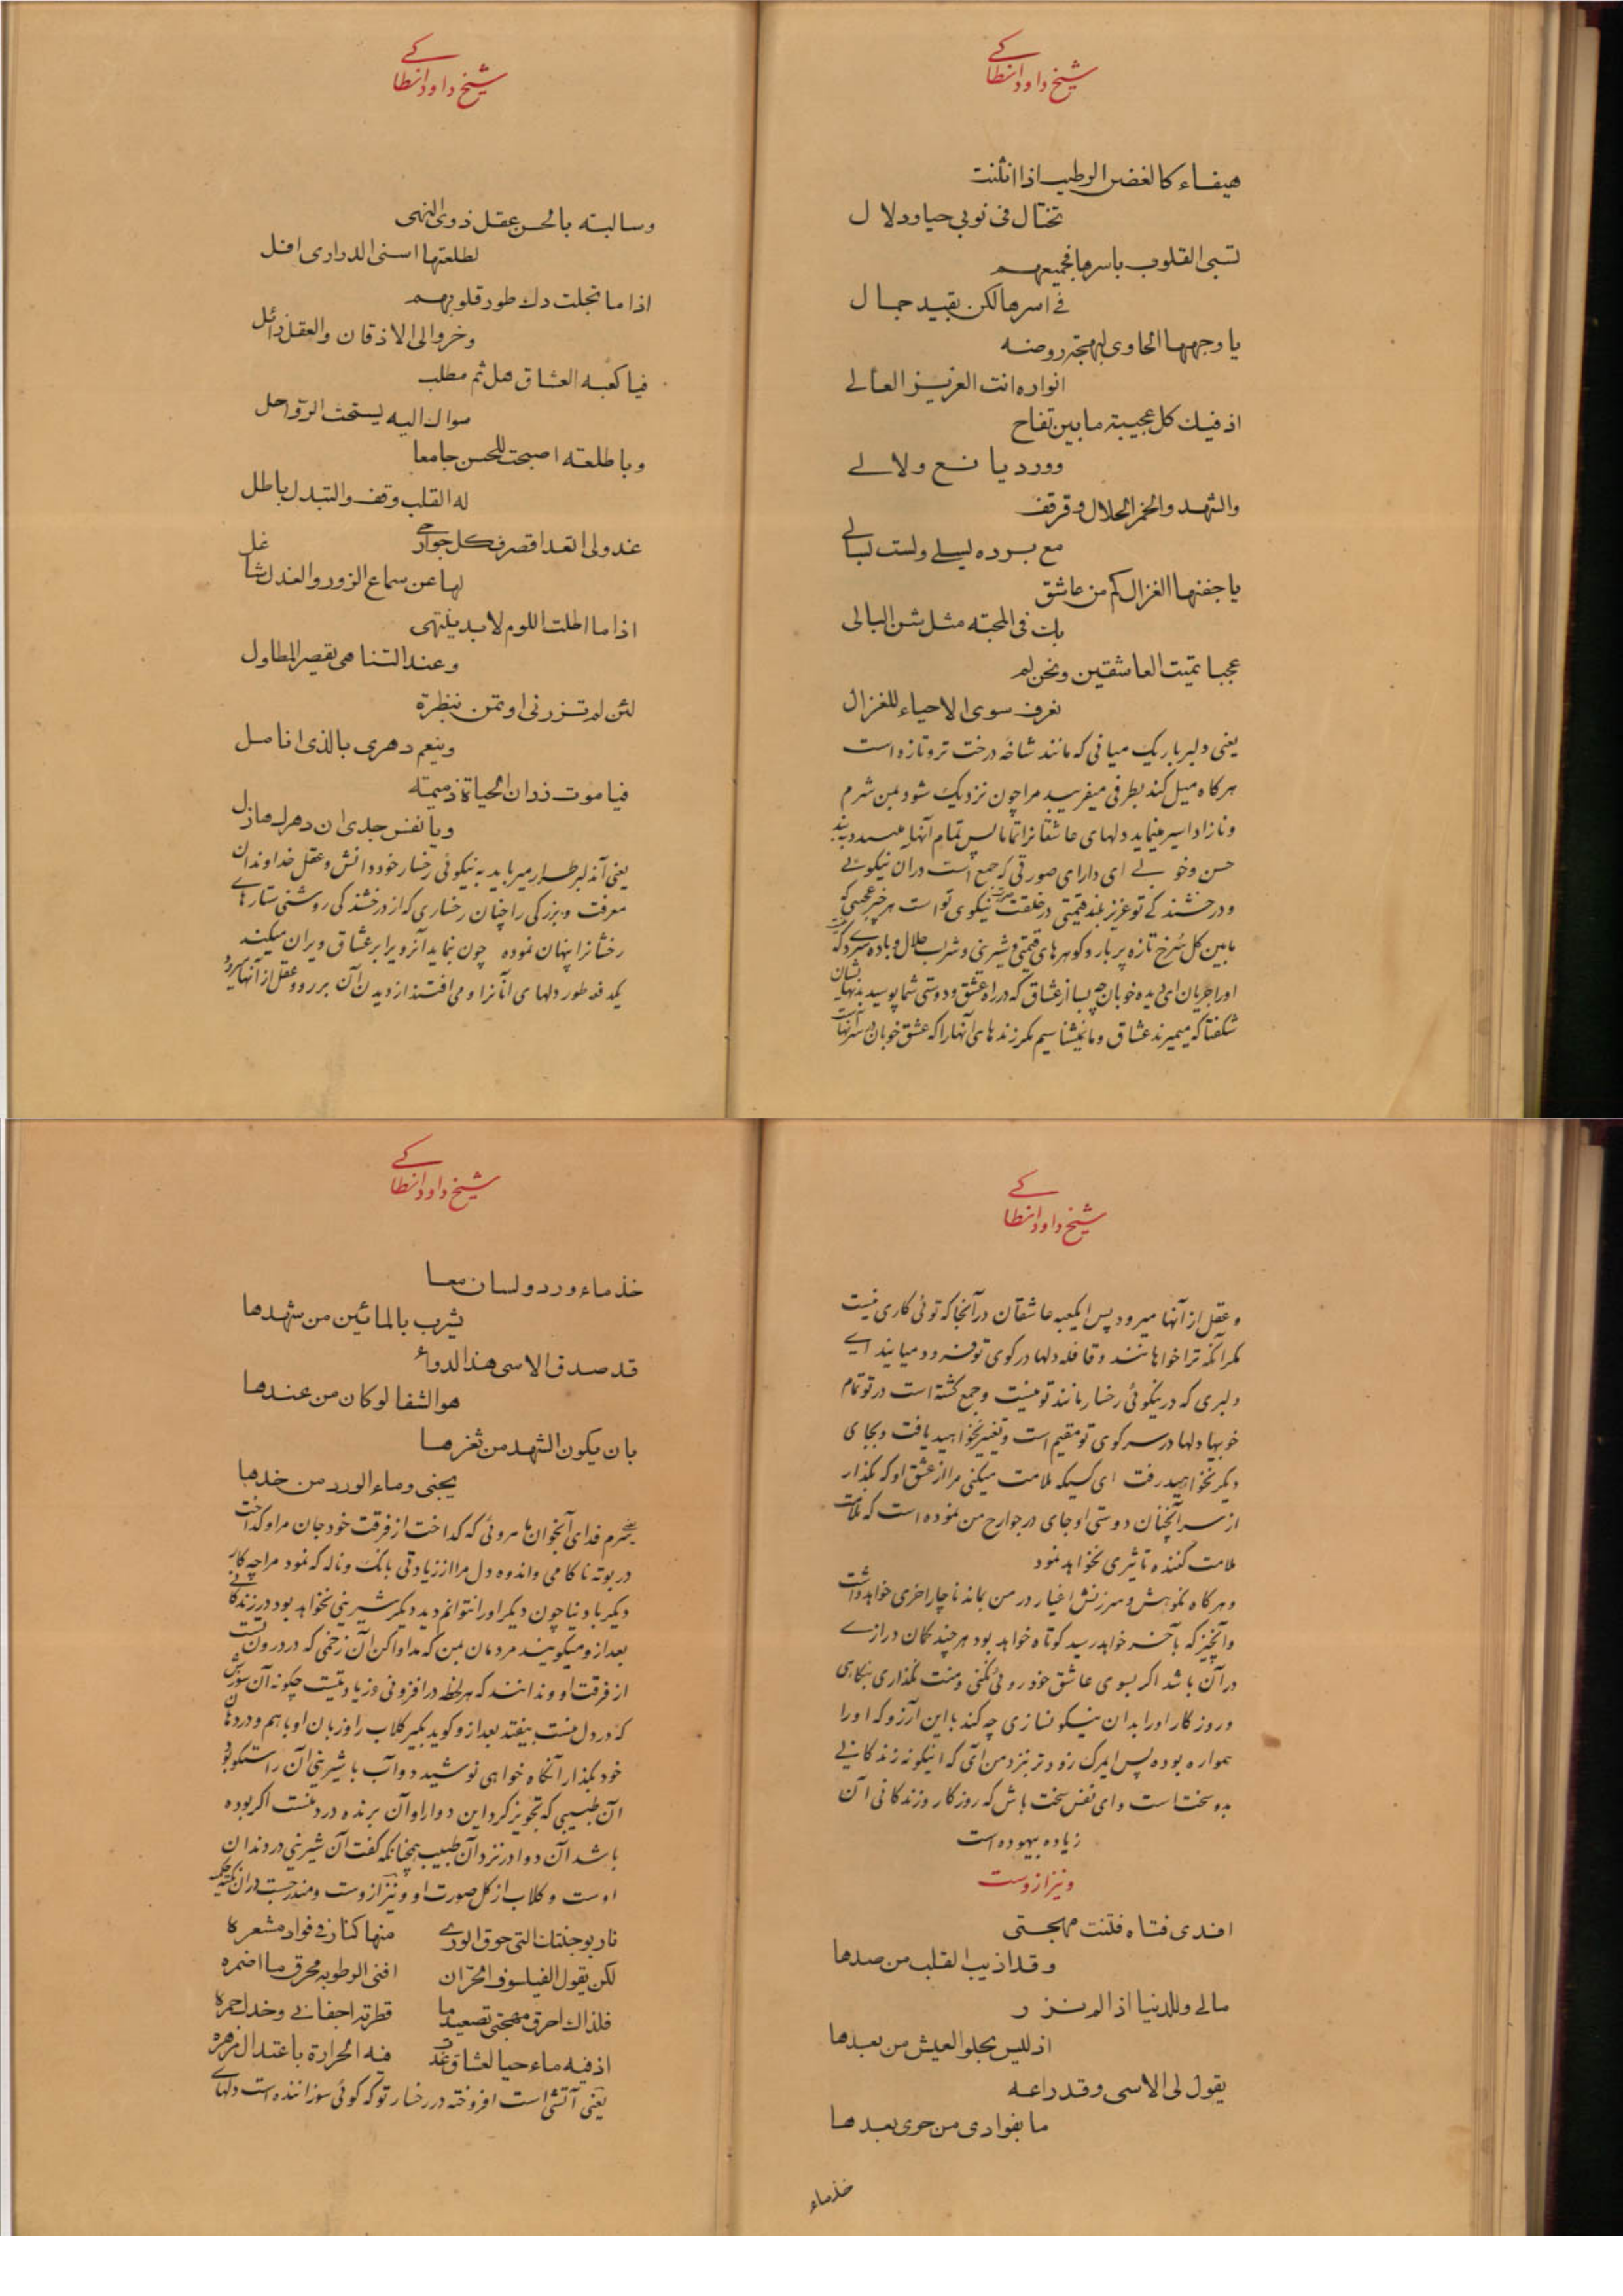 شیخ داود انطاکے
هیفاء کالغصن الرطیب اذا انثنت
تختال فی ثوبی حیا ودلال
تسبی القلوب باسرها فجمیعهم
فی اسرها لکن بقید جمال
یا وجهها الحاوی لبهجة روضه
انواره انت العزیز العالے
اذ فیك کل عجیبة ما بین تفاح
وورد یانع ولالے
والشهد والخمر الحلال وقرقف
مع برده لیسلے ولست بسالے
یا جفنها الغزال کم من عاشق
بك فی المحبته مثل شن البالی
عجبا تمیت العاشقین ونحن لم
نعرف سوی الاحیاء للغزال
یعنی دلبر باریک میانی که مانند شاخه درخت تر و تازه است
هرکاه میل کند بطرفی میفریبد مرا چون نزدیک شود بمن شرم
و ناز اداسیر مینماید دلهای عاشقانرا تماما پس تمام آنها
حسن وخوبے ای دارای صورتی که جمع است دران نیکوئے
ودرخشندکے تو عزیز بلند قیمتی در خلقت نیکوی تو است هر چیز عجیبی که
مابین کل سرخ تازه پر بار و کوهرهای قیمتی وشیرینی وشرب حلال وباده
اورا جریان ای دیده خوبان چه بسا از عشاق که در راه عشق ودوستی شما پوسید بدنهایشان
شکفتا که میمیرند عشاق وما نمیشناسیم مکر زندهای آنها را که عشق خوبان
شیخ داود انطاکے
وسالبته بالحسن عقل ذوی النهی
لطلعتها اسنی الدراری افل
اذا ما تجلت دك طور قلوبهم
وخروا الی الاذقان والعقل زائل
فیا کعبه العشاق هل ثم مطلب
سواك الیه یستحث الرواحل
ویا طلعته اصبحت للحسن جامعا
له القلب وقف والتبدل باطل
عذولی اتعدا قصر فکل جوارحی
لها عن سماع الزور والعذل شاغل
اذا ما اطلت اللوم لابد ینتهی
وعند التناهی یقصر المطاول
لئن لم تزرنی او تمن بنظرة
وینعم دهری بالذی انا مل
فیا موت زر ان الحیاة ذمیمته
ویا نفس جدی ان دهرك هازل
یعنی آندلبر طرار میرباید به نیکوئی رخسار خود دانش وعقل خداوندان
معرفت وبزرکی را چنان رخساری که از درخشندکی روشنی ستارهاے
رخشانرا پنهان نموده چون نماید آنرو برابر عشاق ویران میکند
یکدفعه طور دلهای آنانرا ومی افتند از دیدن آن بر رو وعقل از آنها میرود
شیخ داود انطاکے
وعقل از آنها میرود پس ایکعبه عاشقان در آنجا که توئی کاری نیست
مکر آنکه ترا خواهانند وقافله دلها در کوی تو فرو میایند اے
دلبری که در نیکوئی رخسار مانند تو نیست وجمع کشته است در تو تمام
خوبیها دلها در سر کوی تو مقیم است وتغییر نخواهید یافت وبجای
دیکر نخواهید رفت ای کسیکه ملامت میکنی مرا از عشق او که بکذار
از سر آنچنان دوستی او جای در جوارح من نموده است که ملامت
ملامت کننده تاثیری نخواهد نمود
وهرکاه نکوهش وسرزنش اغیار در من بماند ناچار اخری خواهد داشت
وآنچیز که بآخر خواهد رسید کوتاه خواهد بود هرچند کمان درازے
در آن باشد اکر بسوی عاشق خود روئی نکنی ومنت نکذاری بنکاهی
وروزکار اورا بدان نیکو نسازی چه کند با این آرزو که اورا
همواره بوده پس ایمرک زودتر بنزد من آی که اینکونه زندکانے
بد وسخت است وای نفس سخت باش که روزکار وزندکانی آن
زیاده بیهوده است
ونیز ازوست
افدی فتاه فتنت مهجتی
وقد اذیب القلب من صدها
مالے وللدنیا اذا لم نزر
اذ لیس یحلو العیش من بعدها
یقول لی الاسی وقد راعه
ما بفوادی من جوی بعدها
خذماء
شیخ داود انطاکے
خذ ماء ورد ولسان معا
یشرب بالمائین من شهدها
قد صدق الاسی هذا الدواء
هو الشفا لو کان من عندها
بان یکون الشهد من ثغرها
یجنی وماء الورد من خدها
شوم فدای آنخوان ماهروئی که کداخت از فرقت خود جان مرا وکداخت
در بوته ناکامی واندوه دل مرا از زیادتی بانک وناله که نمود مرا چه کار
دیکر با دنیا چون دیکر اورا نتوانم دید دیکر شیرینی نخواهد بود در زندکانے
بعد از ومیکویند مردمان بمن که مداوا کن آن زخمی که در درون تست
از فرقت او وندانند که هر لحظه در افزونی وزیادتیست چکونه آن سوزش
که در دل منست بیفتد بعد ازو کوید بکیر کلاب را وزبان اوبا هم ودردهان
خود بکذار آنکاه خواهی نوشید دو آب با شیرینی آن راستکو بود
آن طبیبی که تجویز کرد این دوارا وآن برنده درد منست اکر بوده
باشد آن دوا در نزد آن طبیب همچنانکه کفت آن شیرینی در دندان
اوست وکلاب از کل صورت او ونیز ازوست ومندرجست دران نکته حکمیه
نار بوجنتك التی حرق الوری منها کنا زفے فواد مشعره
لکن یقول الفیلسوف الحران افنی الرطوبه محرق ما اضمره
فلذاك احرق مهجتی تصعیدها قطرته اجفانے وخدك احمره
اذ فیه ماء حیا لعشاق غدت فیه الحرارة باعتدال مزهره
یعنی آتشی است افروخته در رخسار تو که کوئی سوزاننده است دلهاے